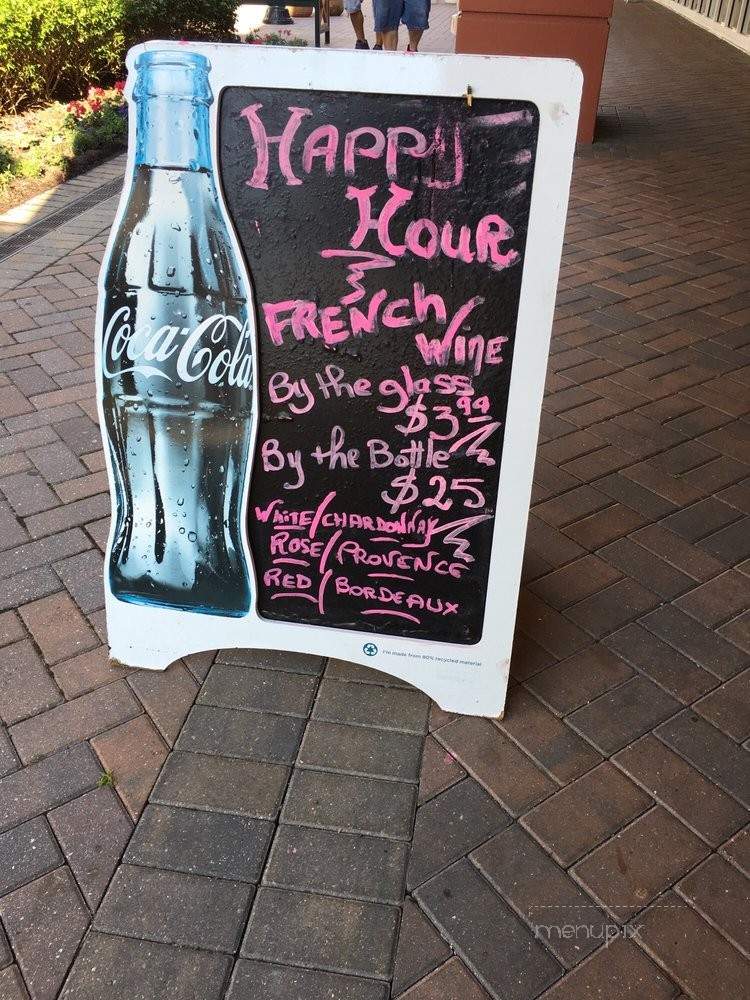 Happy
Hour
FRENCH
WINE
By the glass
$3.99
By the Bottle
$25
WHITE/CHARDONNAY
ROSE/PROVENCE
RED/BORDEAUX
Coca-Cola
I'm made from 80% recycled material
menupix